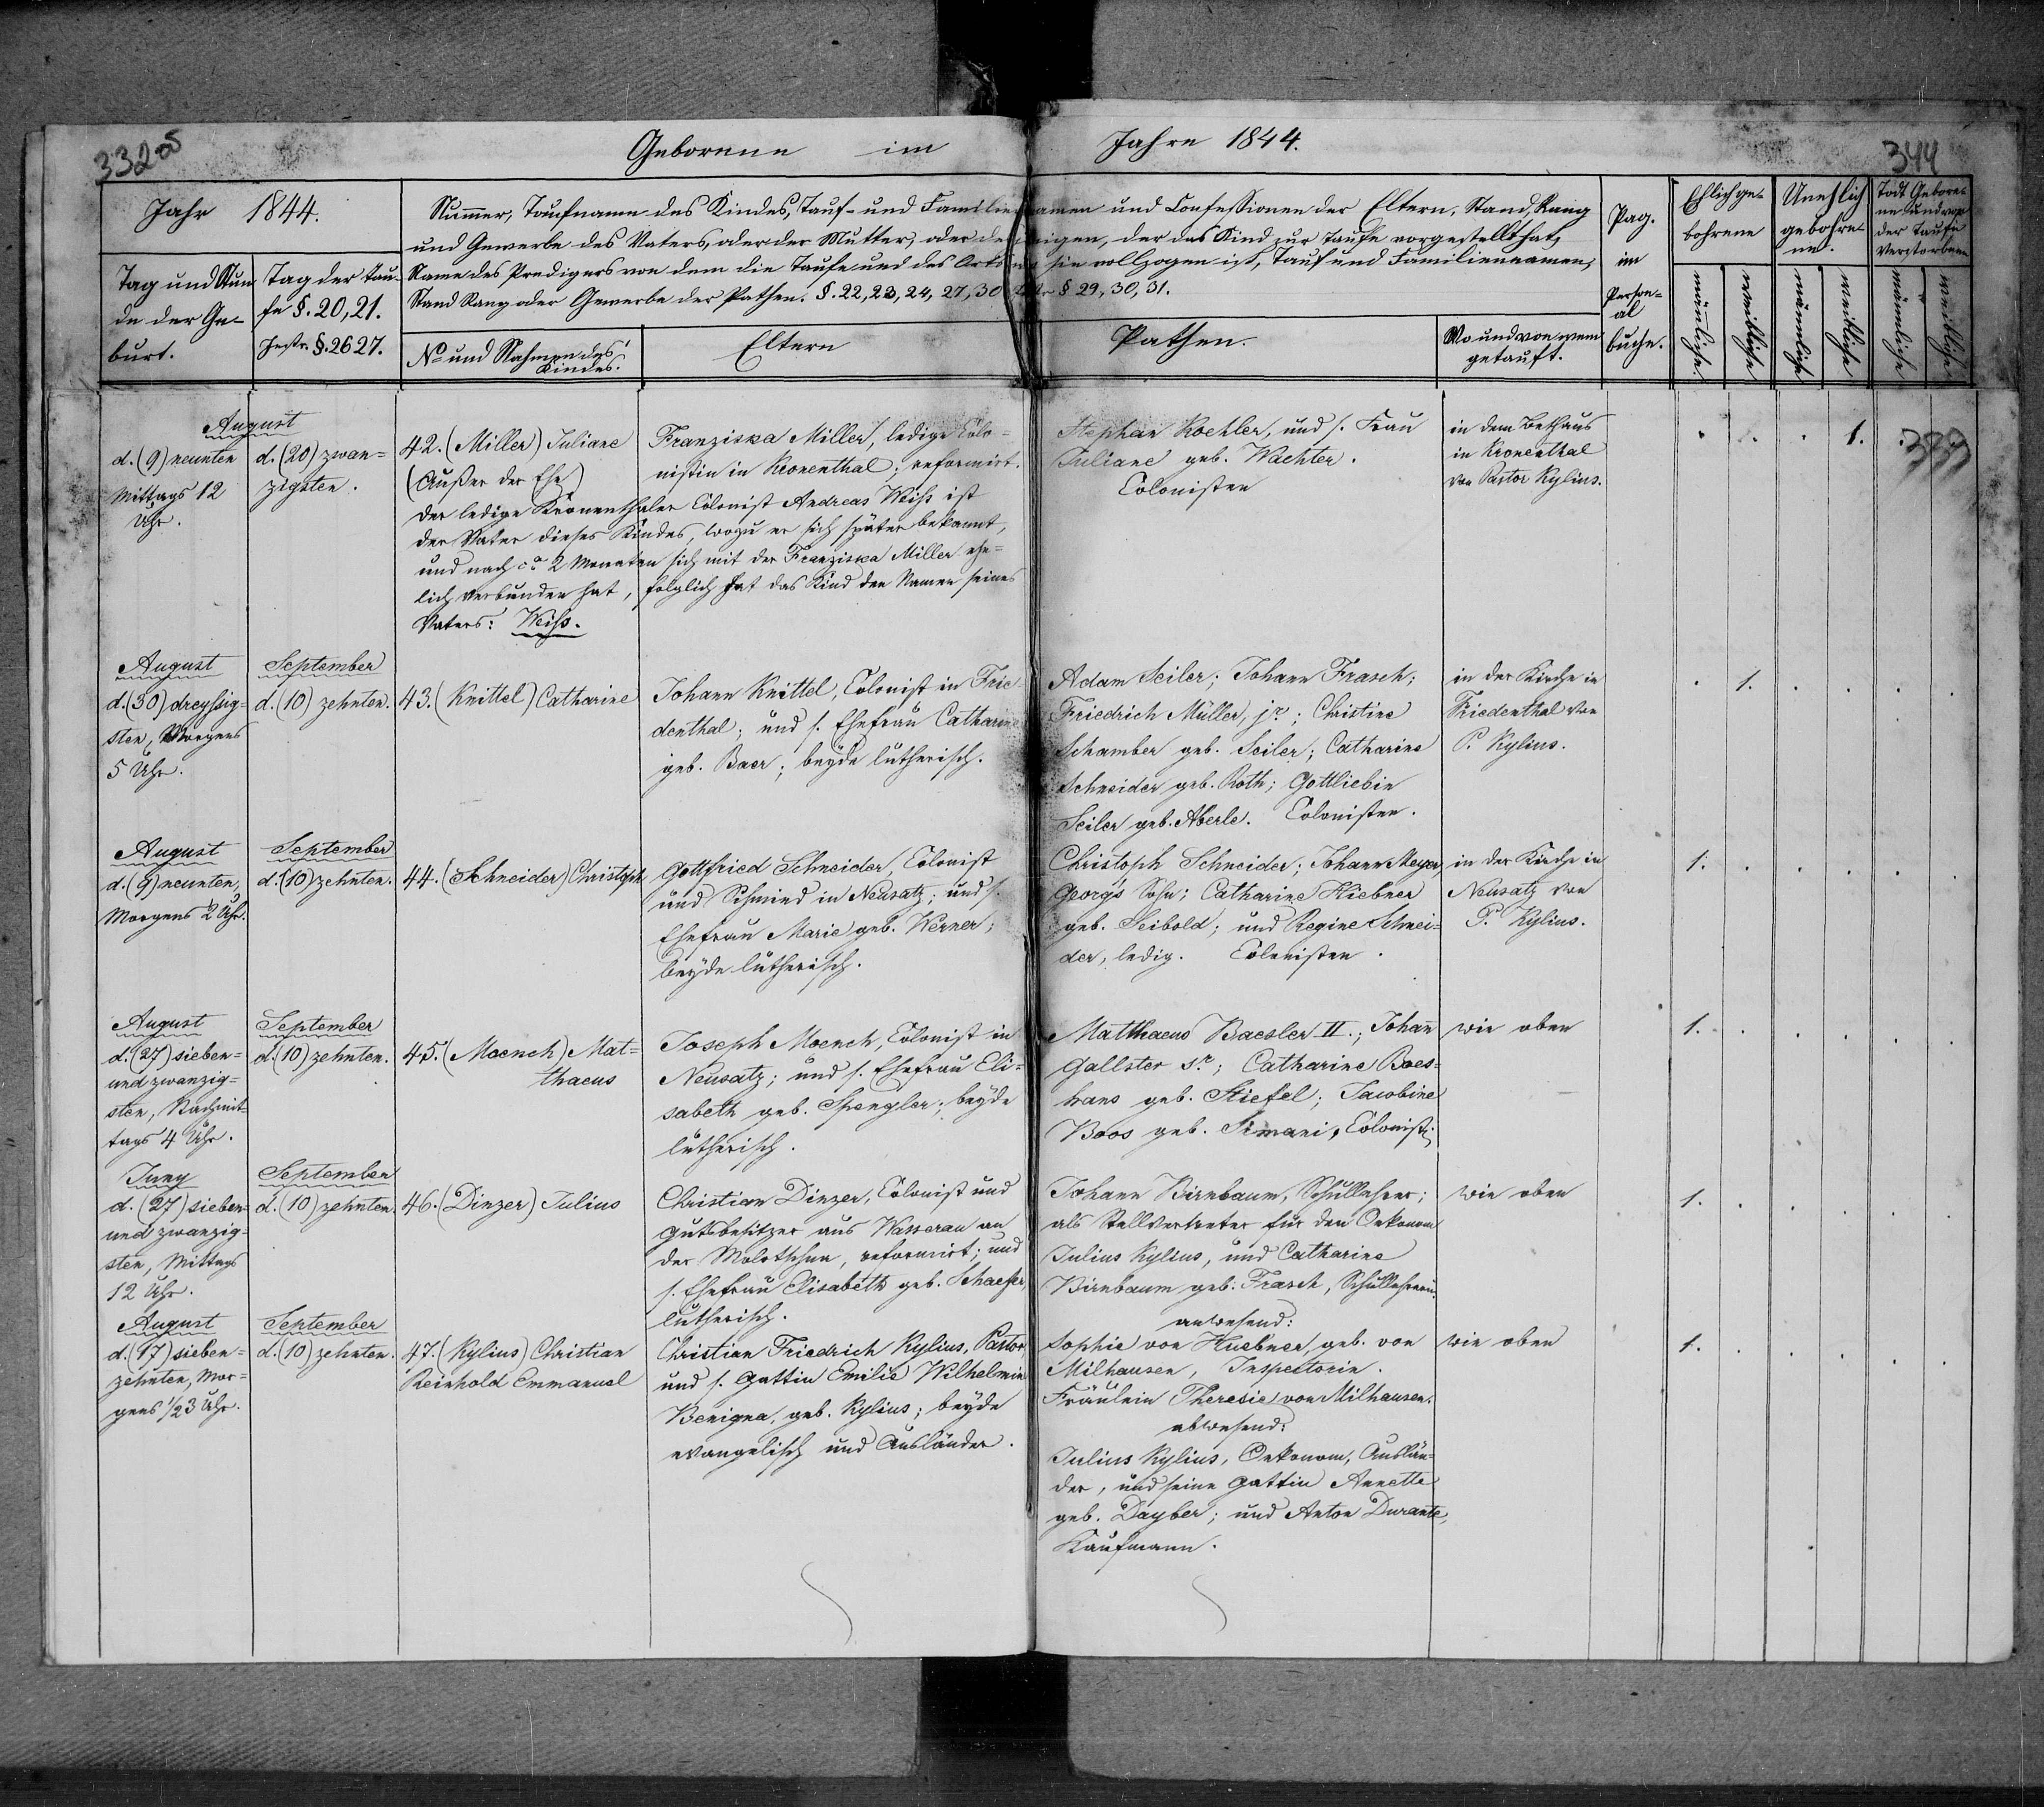 332 05
Geborene im Jahre 1844.
344
Jahr 1844.
Tag und Stun
de der Ge-
burt.
Tag der Tau-
fe §. 20, 21.
Instr. §. 26 27.
Nummer, Taufname des Kindes, Tauf- und Familiennamen und Confessionen der Eltern, Stand, Rang
und Gewerbe des Vaters, oder der Mutter, oder desjenigen, der das Kind zur Taufe vorgestellt hat,
Name des Predigers von dem die Taufe und des Orts wo sie vollzogen ist, Tauf und Familiennamen,
Stand Rang oder Gewerbe der Pathen. §. 22, 23, 24, 27, 30 Instr § 29, 30, 31.
No und Nahmen des
Kindes.
Eltern
Pathen.
Wo und von wem
getauft.
Pag.
im
Person-
al
buche.
Ehlich ge-
bohrene
Unehlich
gebohre-
ne.
Todt Gebore-
ne und vor
der Taufe
Verstorbene
männliche
weibliche
männliche
weibliche
männliche
weibliche
August
d. (9) neunten
Mittags 12
Uhr.
d. (20) zwan=
zigsten.
42. (Miller) Juliane
(Außer der Ehe)
Franziska Miller, ledige Colo=
nistin in Kronenthal; reformirt.
Der ledige Kronenthaler Colonist Andreas Weiß ist
der Vater dieses Kindes, wozu er sich später bekannt,
und nach ca 2 Monaten sich mit der Franziska Miller ehe=
lich verbunden hat, folglich hat das Kind den Namen seines
Vaters: Weiß.
Stephan Koehler, und s. Frau
Juliane geb. Wachter.
Colonisten
in dem Bethaus
in Kronenthal
von Pastor Kylius.
1.
379
August
d. (30) dreyssig=
sten, Morgens
5 Uhr.
September
d. (10) zehnten.
43. (Knittel) Catharine
Johann Knittel, Colonist in Frie
denthal; und s. Ehefrau Catharine
geb. Baer; beyde lutherisch.
Adam Seiler; Johann Frasch;
Friedrich Müller, jr; Christine
Schamber geb. Seiler; Catharine
Schneider geb. Roth; Gottliebin
Seiler geb. Aberle. Colonisten.
in der Kirche in
Friedenthal von
P. Kylius.
1.
August
d. (9) neunten,
Morgens 2 Uhr.
September
d. (10) zehnten.
44. (Schneider) Christoph
Gottfried Schneider, Colonist
und Schmied in Neusatz; und s.
Ehefrau Marie geb. Werner;
beyde lutherisch.
Christoph Schneider; Johann Meyer
Georg's Sohn; Catharine Kiebner
geb. Seibold; und Regine Schnei=
der, ledig. Colonisten.
in der Kirche in
Neusatz von
P. Kylius.
1.
August
d. (27) sieben=
und zwanzig=
sten, Nachmit
tags 4 Uhr.
September
d. (10) zehnten.
45. (Moench) Mat=
thaeus
Joseph Moench, Colonist in
Neusatz; und s. Ehefrau Eli=
sabeth geb. Spengler; beyde
lutherisch.
Matthaeus Baesler II.; Johann
Gallster sr; Catharine Boes=
hans geb. Stiefel; Jacobine
Boos geb. Simani, Colonist.
wie oben
1.
Juny
d. (27) sieben=
und zwanzig=
sten, Mittags
12 Uhr.
September
d. (10) zehnten.
46. (Dinzer) Julius
Christian Dinzer, Colonist und
Gutsbesitzer aus Wasserau an
der Molotschna, reformirt; und
s. Ehefrau Elisabeth geb. Schaefer,
lutherisch.
Johann Birnbaum, Schullehrer;
als Stellvertreter für den Oekonom
Julius Kylius, und Catharine
Birnbaum geb. Frasch, Schullehrerin.
wie oben
1.
August
d. (17) sieben=
zehnten, Mor=
gens 1/2 3 Uhr.
September
d. (10) zehnten.
47. (Kylius) Christian
Reinhold Emmanuel
Christian Friedrich Kylius, Pastor
und s. Gattin Emilie Wilhelmin
Benigna, geb. Kylius; beyde
evangelisch und Ausländer.
anwesend:
Sophie von Huebner, geb. von
Milhausen, Inspectorin.
Fräulein Theresie von Milhausen.
abwesend:
Julius Kylius, Oekonom, Auslän=
der, und seine Gattin Annette
geb. Dayber; und Anton Durante,
Kaufmann.
wie oben
1.